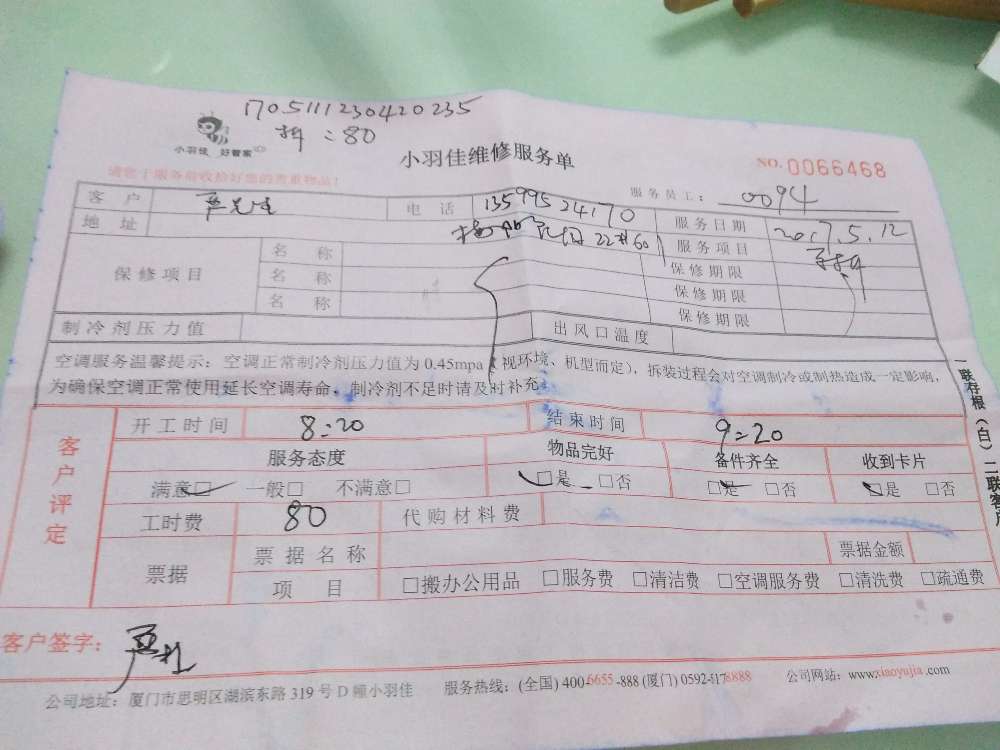 1705111230420235
:80
小羽佳 好管家
小羽佳维修服务单
NO.0066468
请您于服务前收拾好您的贵重物品!
服务员工: 0094
客户 严先生 电话 13599524170 服务日期 2017.5.12
地址 22 601 服务项目
保修项目 名称 保修期限
名称 保修期限
名称 保修期限
制冷剂压力值 出风口温度
空调服务温馨提示:空调正常制冷剂压力值为0.45mpa(视环境、机型而定),拆装过程会对空调制冷或制热造成一定影响,
为确保空调正常使用延长空调寿命,制冷剂不足时请及时补充。
客户评定
开工时间 8:20 结束时间 9:20
服务态度 物品完好 备件齐全 收到卡片
满意□ 一般□ 不满意□ □是 □否 □是 □否 □是 □否
工时费 80 代购材料费
票据 票据名称 票据金额
项目 □搬办公用品 □服务费 □清洁费 □空调服务费 □清洗费 □疏通费
客户签字:
公司地址:厦门市思明区湖滨东路319号D幢小羽佳 服务热线:(全国)400-6655-888(厦门)0592-6178888 公司网站:www.xiaoyujia.com
一联存根(白)二联客户